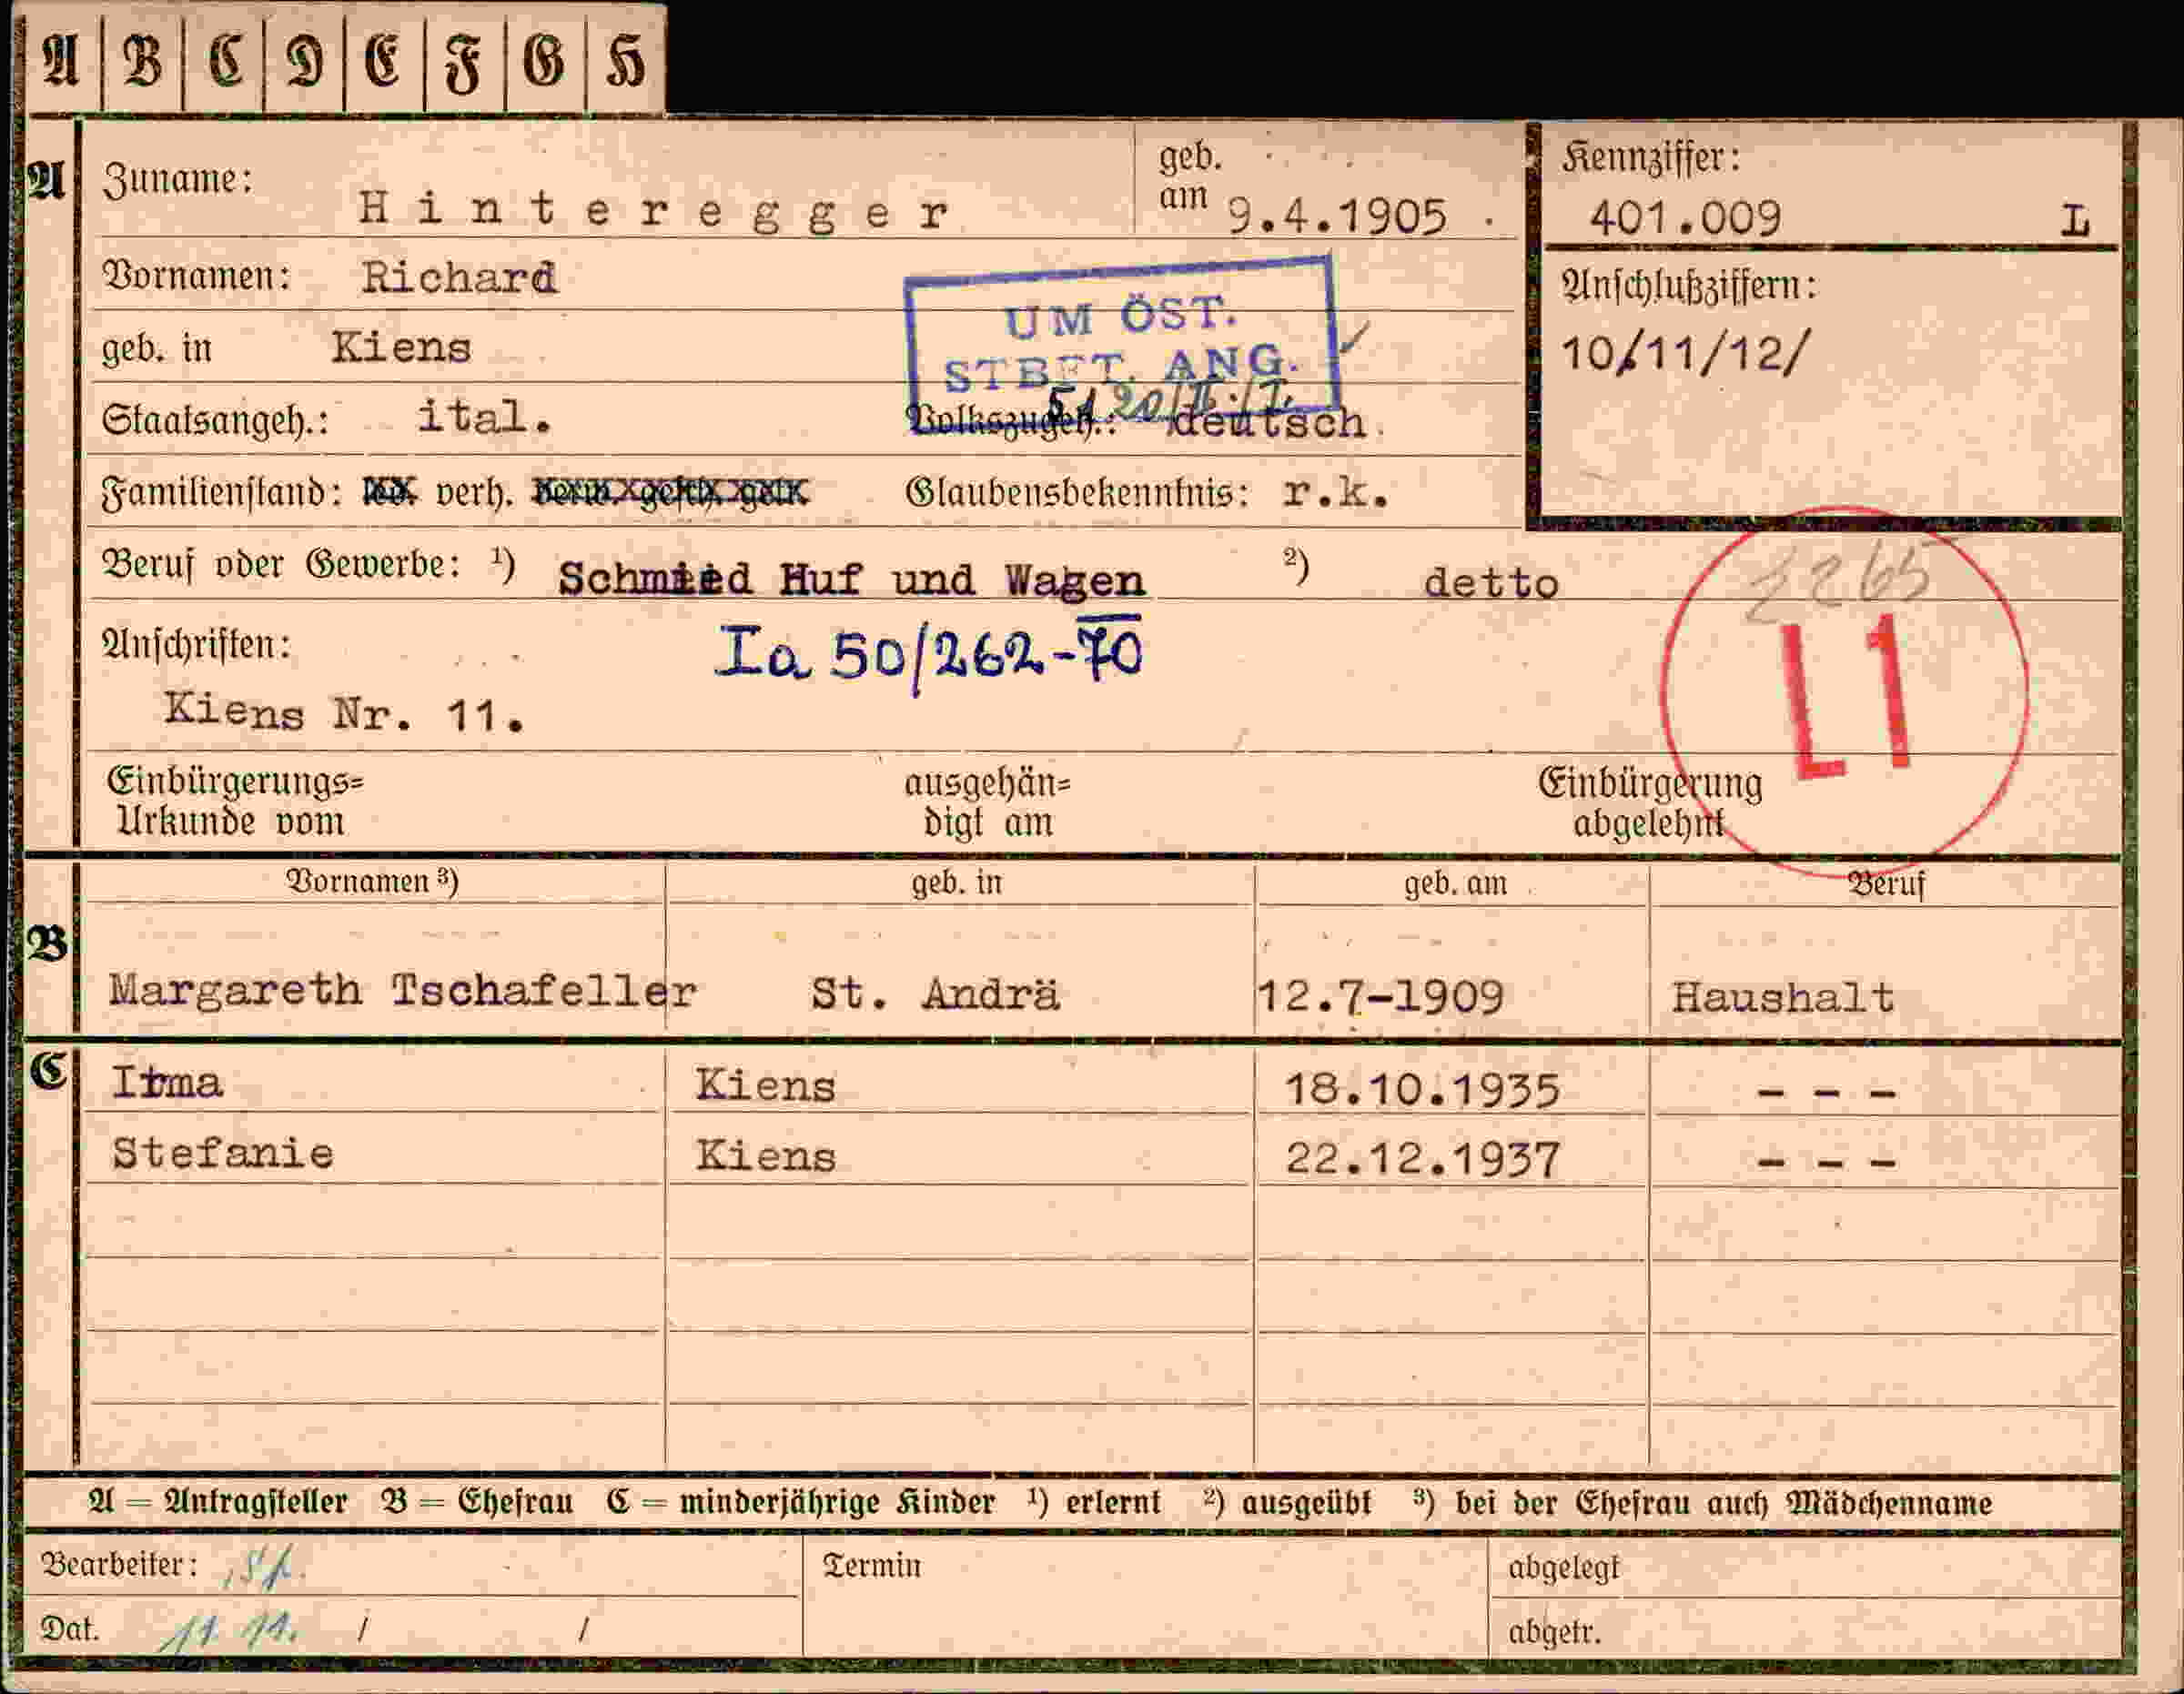 A B C D E F G H
A Zuname: Hinteregger geb. am 9.4.1905 .
Kennziffer: 401.009 L
Vornamen: Richard
Anschlußziffern:
10/11/12/
UM ÖST.
STBFT. ANG.
geb. in Kiens
Staatsangeh.: ital. Volkszugeh.: deutsch.
Familienstand: verh. Glaubensbekenntnis: r.k.
Beruf oder Gewerbe: ¹) Schmied Huf und Wagen ²) detto
2265
L1
Anschriften: Ia 50/262-70
Kiens Nr. 11.
Einbürgerungs= ausgehän= Einbürgerung
Urkunde vom digt am abgelehnt
Vornamen ³) geb. in geb. am Beruf
B Margareth Tschafeller St. Andrä 12.7-1909 Haushalt
C Irma Kiens 18.10.1935 - - -
Stefanie Kiens 22.12.1937 - - -
A = Antragsteller B = Ehefrau C = minderjährige Kinder ¹) erlernt ²) ausgeübt ³) bei der Ehefrau auch Mädchenname
Bearbeiter: Termin abgelegt
Dat. 11. 11. / / abgetr.